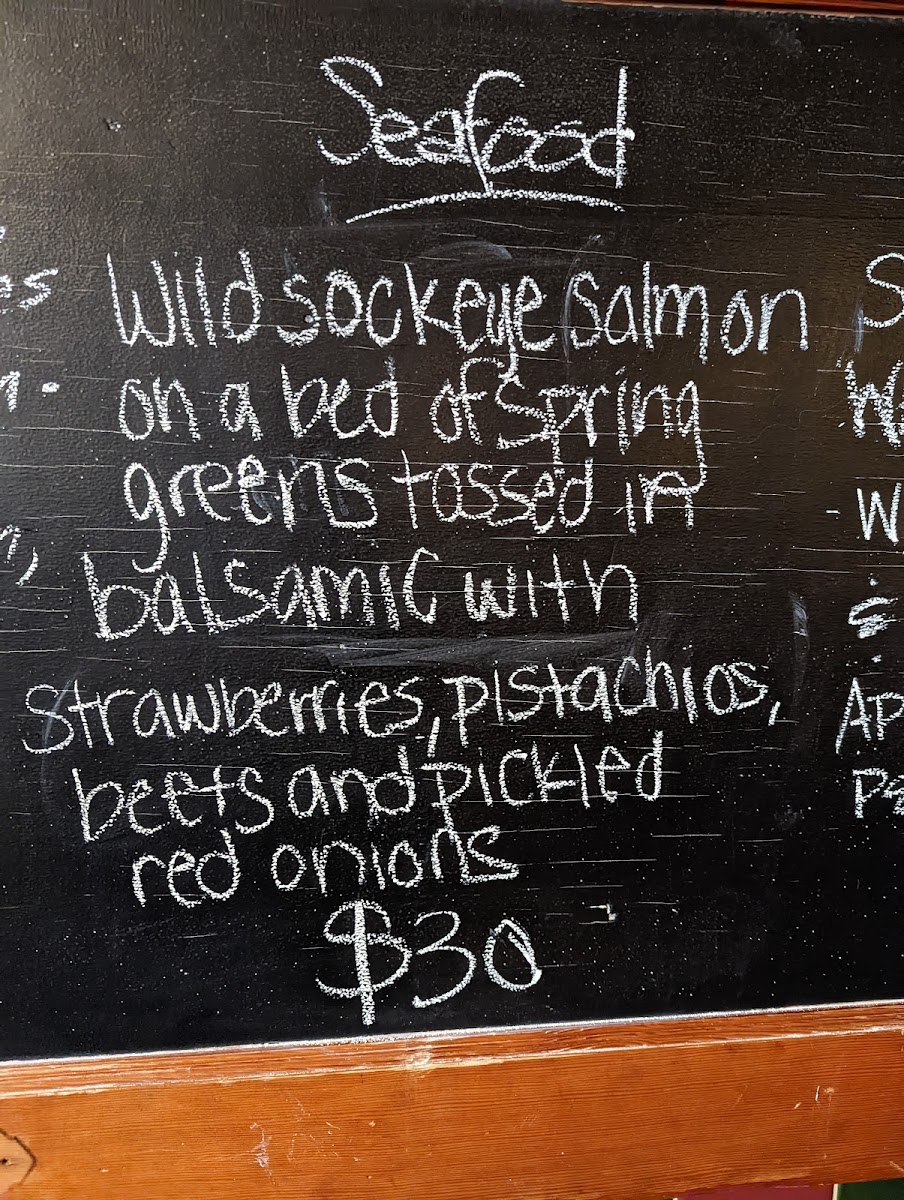 Seafood
Wild sockeye salmon
on a bed of spring
greens tossed in
balsamic with
strawberries, pistachios,
beets and pickled
red onions
$30